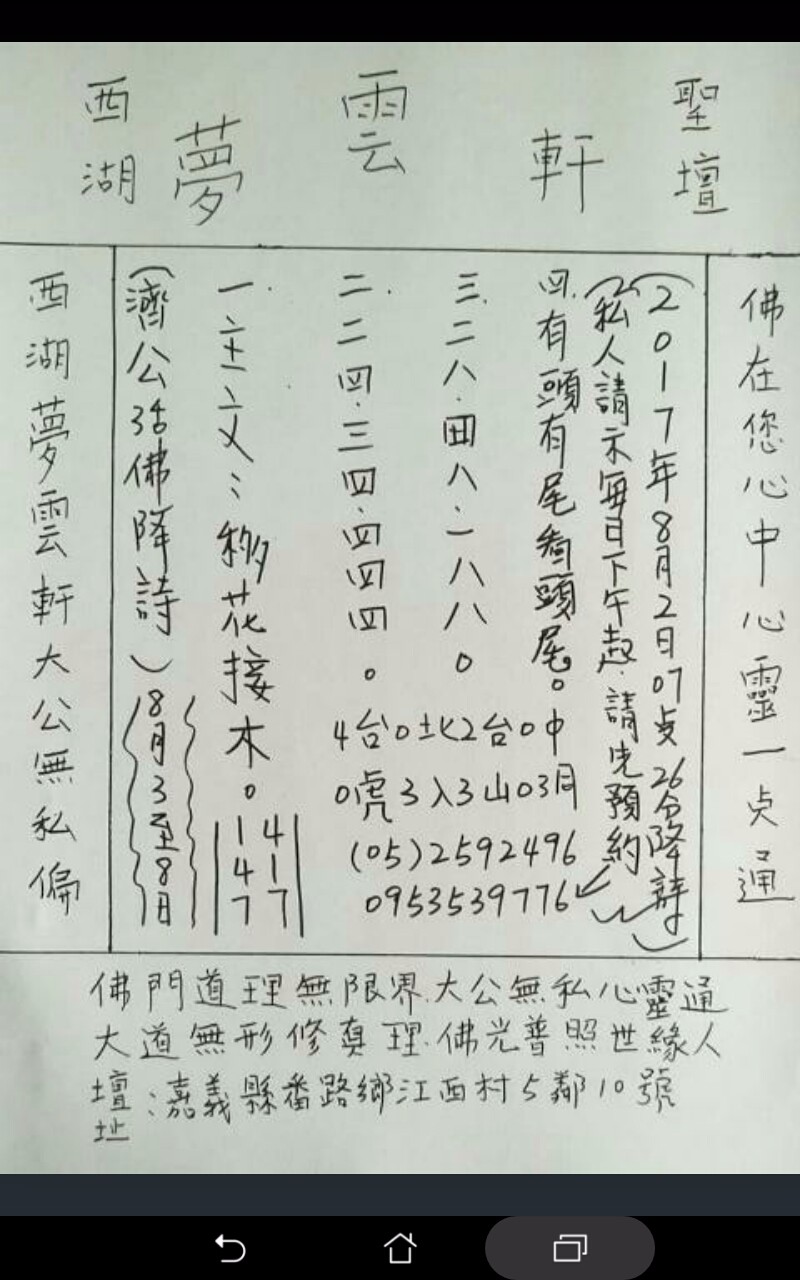 西湖夢雲軒聖壇
佛在您心中心靈一点通
西湖夢雲軒大公無私偏
(濟公活佛降詩)
8月3至8日
一.主文:移花接木。
14
41
77
二.二四.三四.四四四。
三.二八.八.一八八。
四.有頭有尾看頭尾。
4台0北2台0中
0虎3入3山03月
(05)2592496
0953539776
(私人請示每日下午起.請先預約)
(2017年8月2日07点26分降詩)
佛門道理無限界.大公無私心靈通
大道無形修真理.佛光普照世緣人
壇址:嘉義縣番路鄉江西村5鄰10號